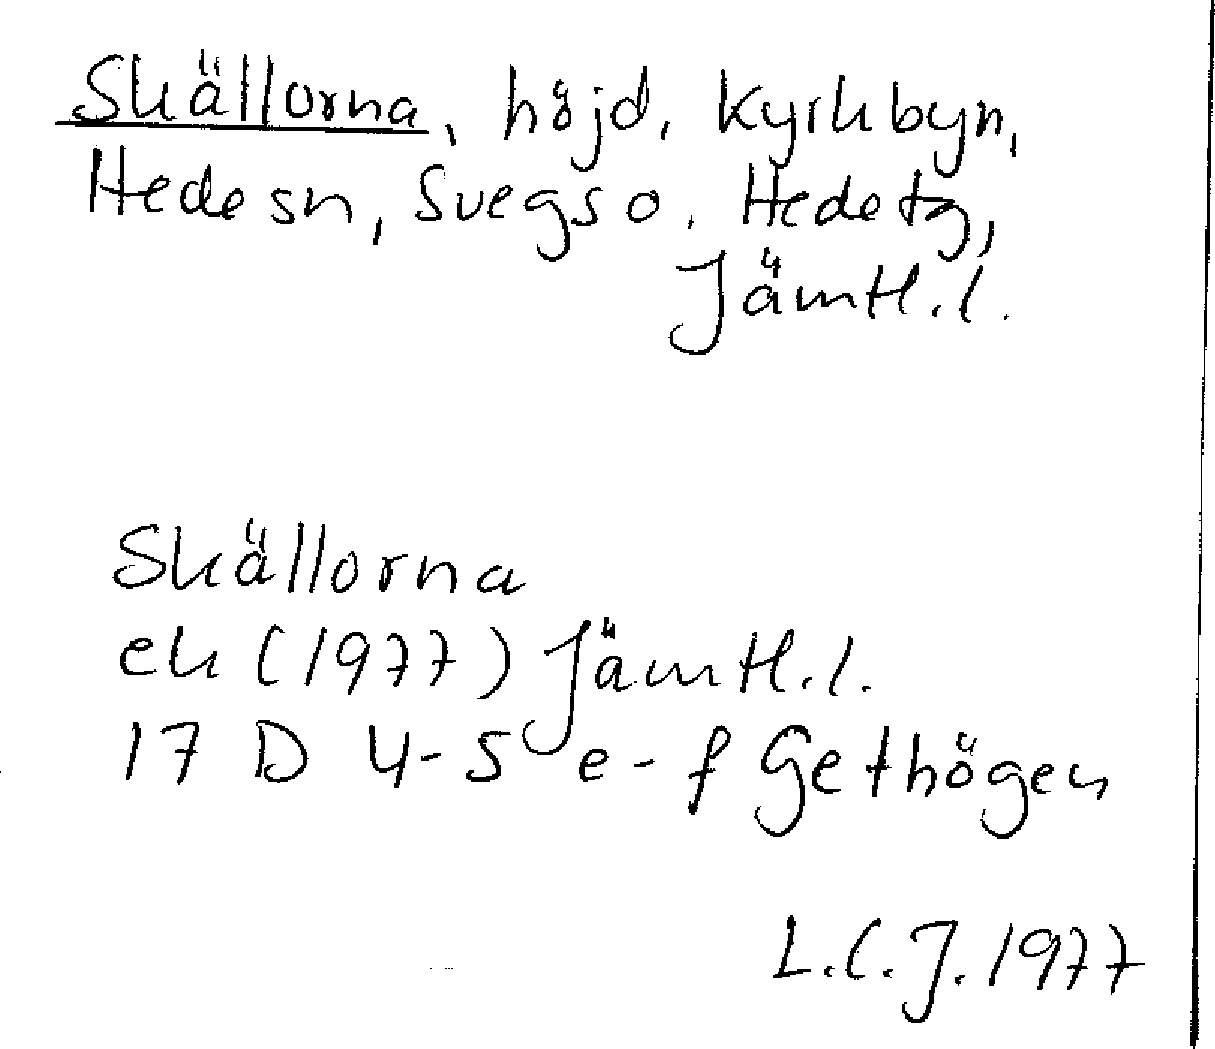 Skällorna, höjd, Kyrkbyn,
Hede sn, Svegs o. Hede tg,
Jämtl.l.
Skällorna
ek (1977) Jämtl.l.
17 D 4-5 e-f Gethögen
L.C.J. 1977